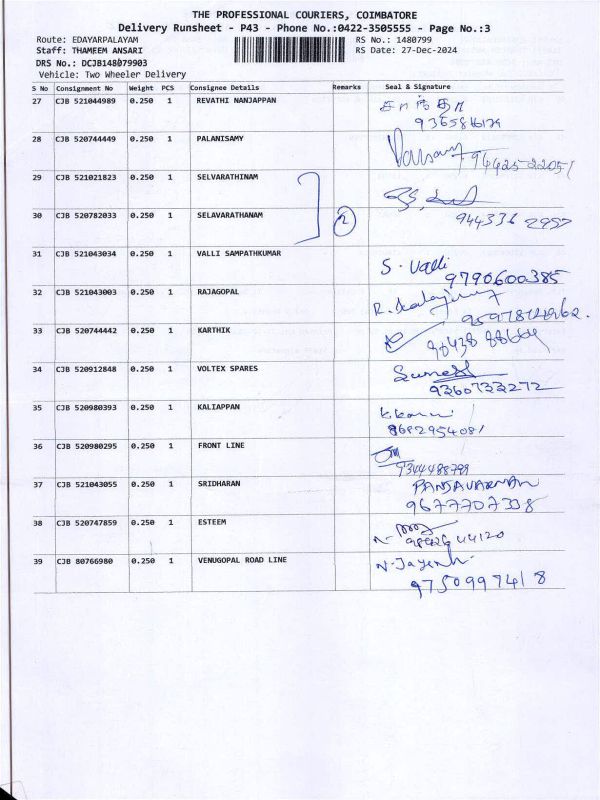 THE PROFESSIONAL COURIERS, COIMBATORE
Delivery Runsheet - P43 - Phone No.:0422-3505555 - Page No.:3
Route: EDAYARPALAYAM RS No.: 1480799
Staff: THAMEEM ANSARI RS Date: 27-Dec-2024
DRS No.: DCJB148079903
Vehicle: Two Wheeler Delivery
S No Consignment No Weight PCS Consignee Details Remarks Seal & Signature
27 CJB 521044989 0.250 1 REVATHI NANJAPPAN
28 CJB 520744449 0.250 1 PALANISAMY
29 CJB 521021823 0.250 1 SELVARATHINAM
30 CJB 520782033 0.250 1 SELAVARATHANAM 2
944336 2957
31 CJB 521043034 0.250 1 VALLI SAMPATHKUMAR S. Valli
9790600385
32 CJB 521043003 0.250 1 RAJAGOPAL
33 CJB 520744442 0.250 1 KARTHIK
34 CJB 520912848 0.250 1 VOLTEX SPARES
9360733272
35 CJB 520980393 0.250 1 KALIAPPAN
8682954081
36 CJB 520980295 0.250 1 FRONT LINE
9344488799
37 CJB 521043055 0.250 1 SRIDHARAN
9677707338
38 CJB 520747859 0.250 1 ESTEEM
39 CJB 80766980 0.250 1 VENUGOPAL ROAD LINE
9750997418